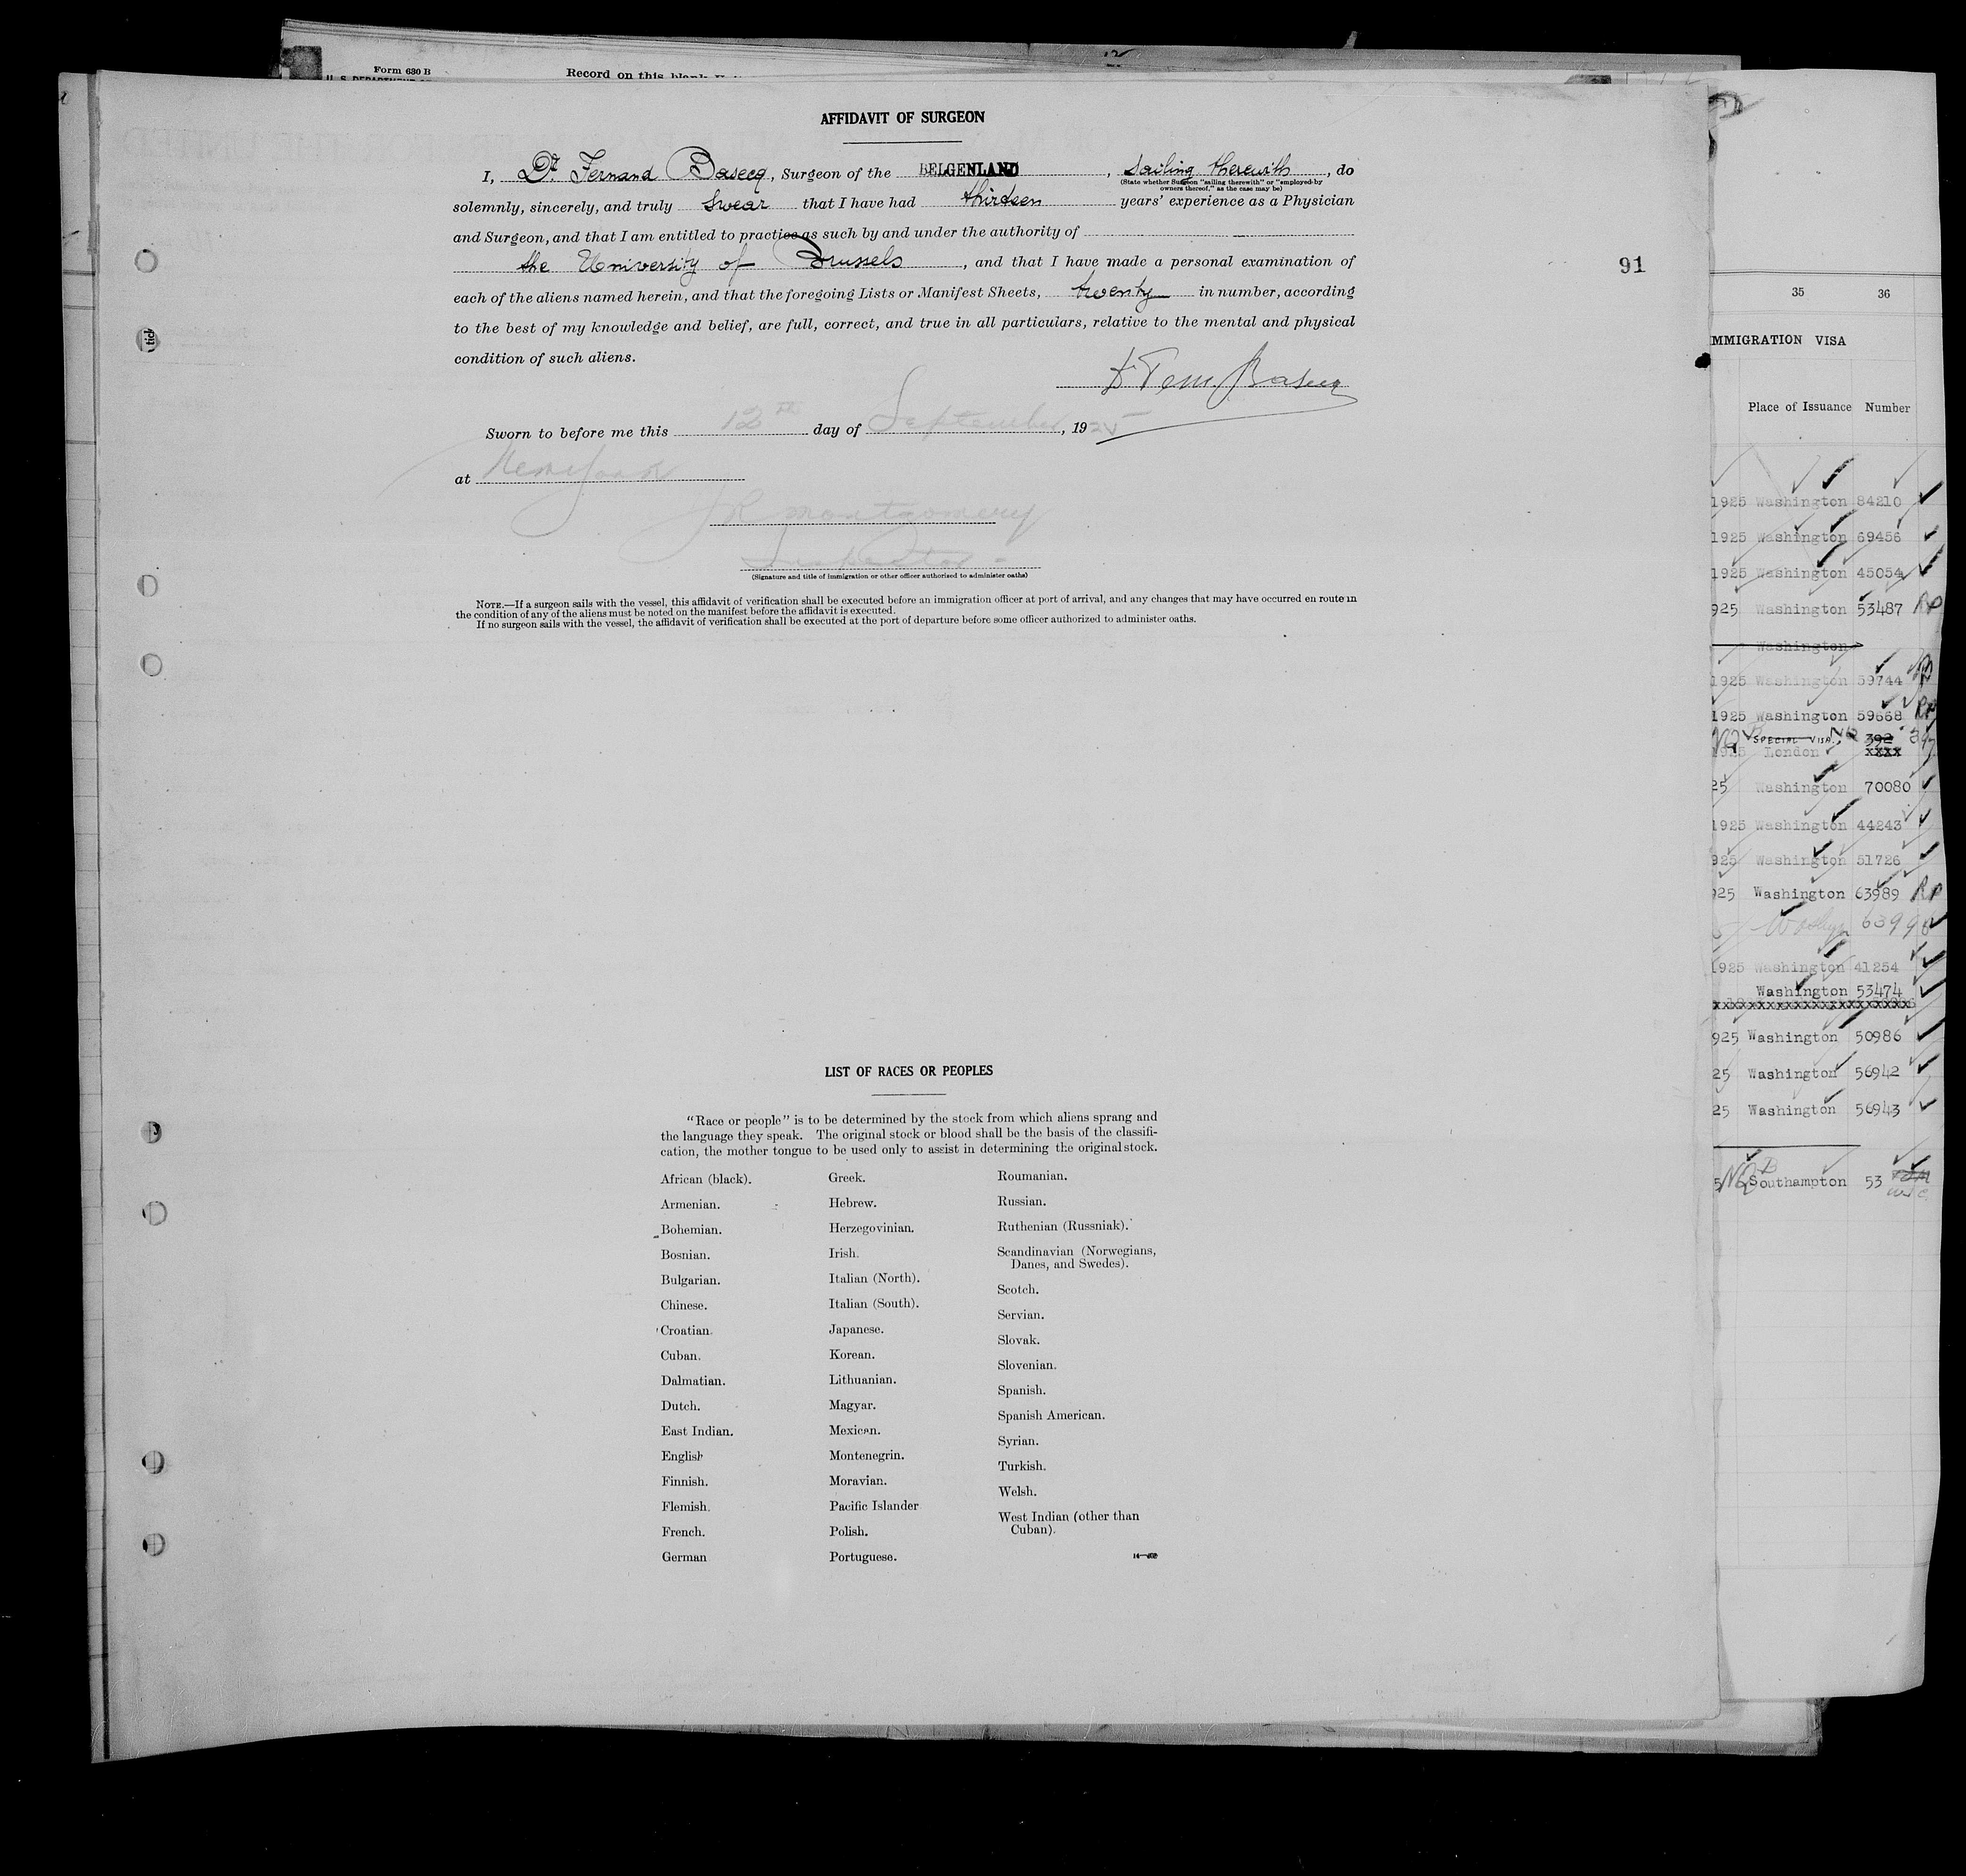 Form 630 B
Record on this blank
AFFIDAVIT OF SURGEON
I, Dr. Fernand Basecq, Surgeon of the BELGENLAND, Sailing therewith, do
(State whether Surgeon "sailing therewith" or "employed by
owners thereof," as the case may be)
solemnly, sincerely, and truly swear that I have had thirteen years' experience as a Physician
and Surgeon, and that I am entitled to practice as such by and under the authority of
the University of Brussels, and that I have made a personal examination of
each of the aliens named herein, and that the foregoing Lists or Manifest Sheets, twenty in number, according
to the best of my knowledge and belief, are full, correct, and true in all particulars, relative to the mental and physical
condition of such aliens.
Dr Fern. Basecq
Sworn to before me this 12th day of September, 1925
at New York
J R Montgomery
Inspector
(Signature and title of immigration or other officer authorized to administer oaths)
NOTE.—If a surgeon sails with the vessel, this affidavit of verification shall be executed before an immigration officer at port of arrival, and any changes that may have occurred en route in
the condition of any of the aliens must be noted on the manifest before the affidavit is executed.
If no surgeon sails with the vessel, the affidavit of verification shall be executed at the port of departure before some officer authorized to administer oaths.
91
LIST OF RACES OR PEOPLES
"Race or people" is to be determined by the stock from which aliens sprang and
the language they speak. The original stock or blood shall be the basis of the classifi-
cation, the mother tongue to be used only to assist in determining the original stock.
African (black).
Armenian.
Bohemian.
Bosnian.
Bulgarian.
Chinese.
Croatian.
Cuban.
Dalmatian.
Dutch.
East Indian.
English
Finnish.
Flemish.
French.
German
Greek.
Hebrew.
Herzegovinian.
Irish.
Italian (North).
Italian (South).
Japanese.
Korean.
Lithuanian.
Magyar.
Mexican.
Montenegrin.
Moravian.
Pacific Islander
Polish.
Portuguese.
Roumanian.
Russian.
Ruthenian (Russniak).
Scandinavian (Norwegians,
Danes, and Swedes).
Scotch.
Servian.
Slovak.
Slovenian.
Spanish.
Spanish American.
Syrian.
Turkish.
Welsh.
West Indian (other than
Cuban).
35 36
MMIGRATION VISA
Place of Issuance Number
1925 Washington 84210
1925 Washington 69456
1925 Washington 45054
925 Washington 53487 RP
Washington
1925 Washington 59744
1925 Washington 59668 RP
NQ SPECIAL VISA. NQ 392
1925 London xxxx
25 Washington 70080
1925 Washington 44243
925 Washington 51726
925 Washington 63989 RP
Washgn 63990
1925 Washington 41254
Washington 53474
xxxxxxxxxxxxxxxxxxxxxx
925 Washington 50986
25 Washington 56942
25 Washington 56943
5 NQ Southampton 53